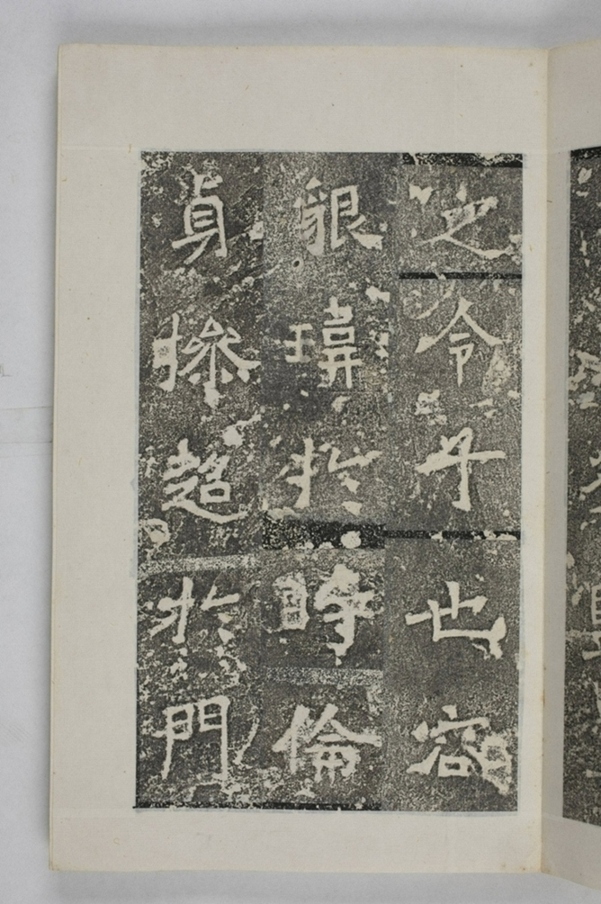 之令丹也容
貌瑋於時倫
貞操超於門